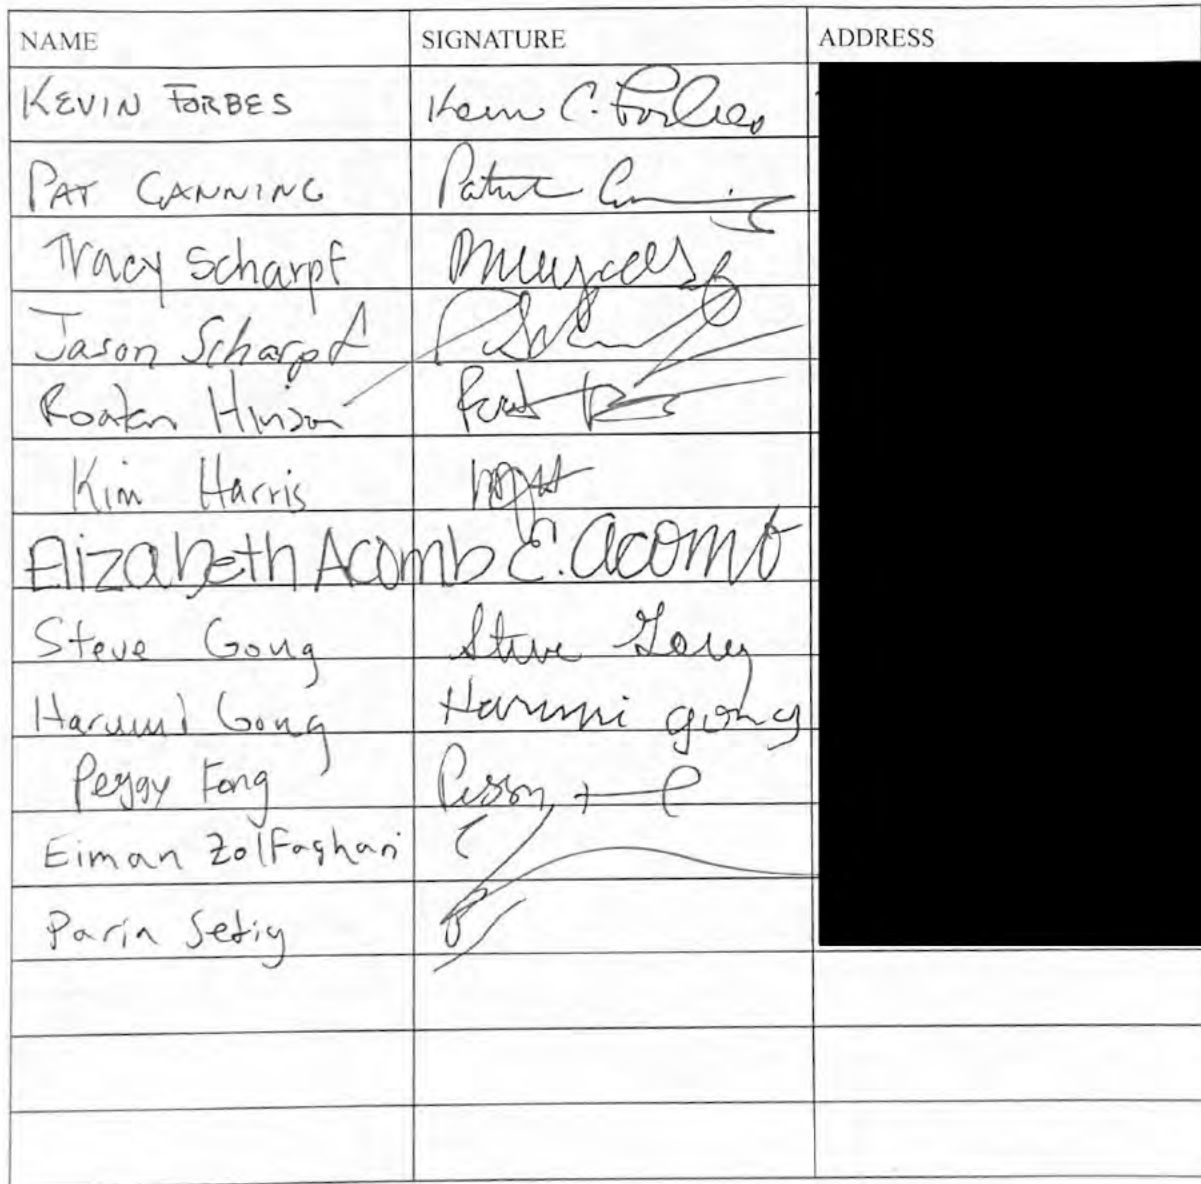 NAME SIGNATURE ADDRESS
KEVIN FORBES Kevin C. Forbes
PAT CANNING
Tracy Scharpf
Jason Scharpf
Roatan Hinson
Kim Harris
Elizabeth Acomb E. Acomb
Steve Gong Steve Gong
Harumi Gong Harumi gong
Peggy Fong
Eiman Zolfaghari
Parin Setig